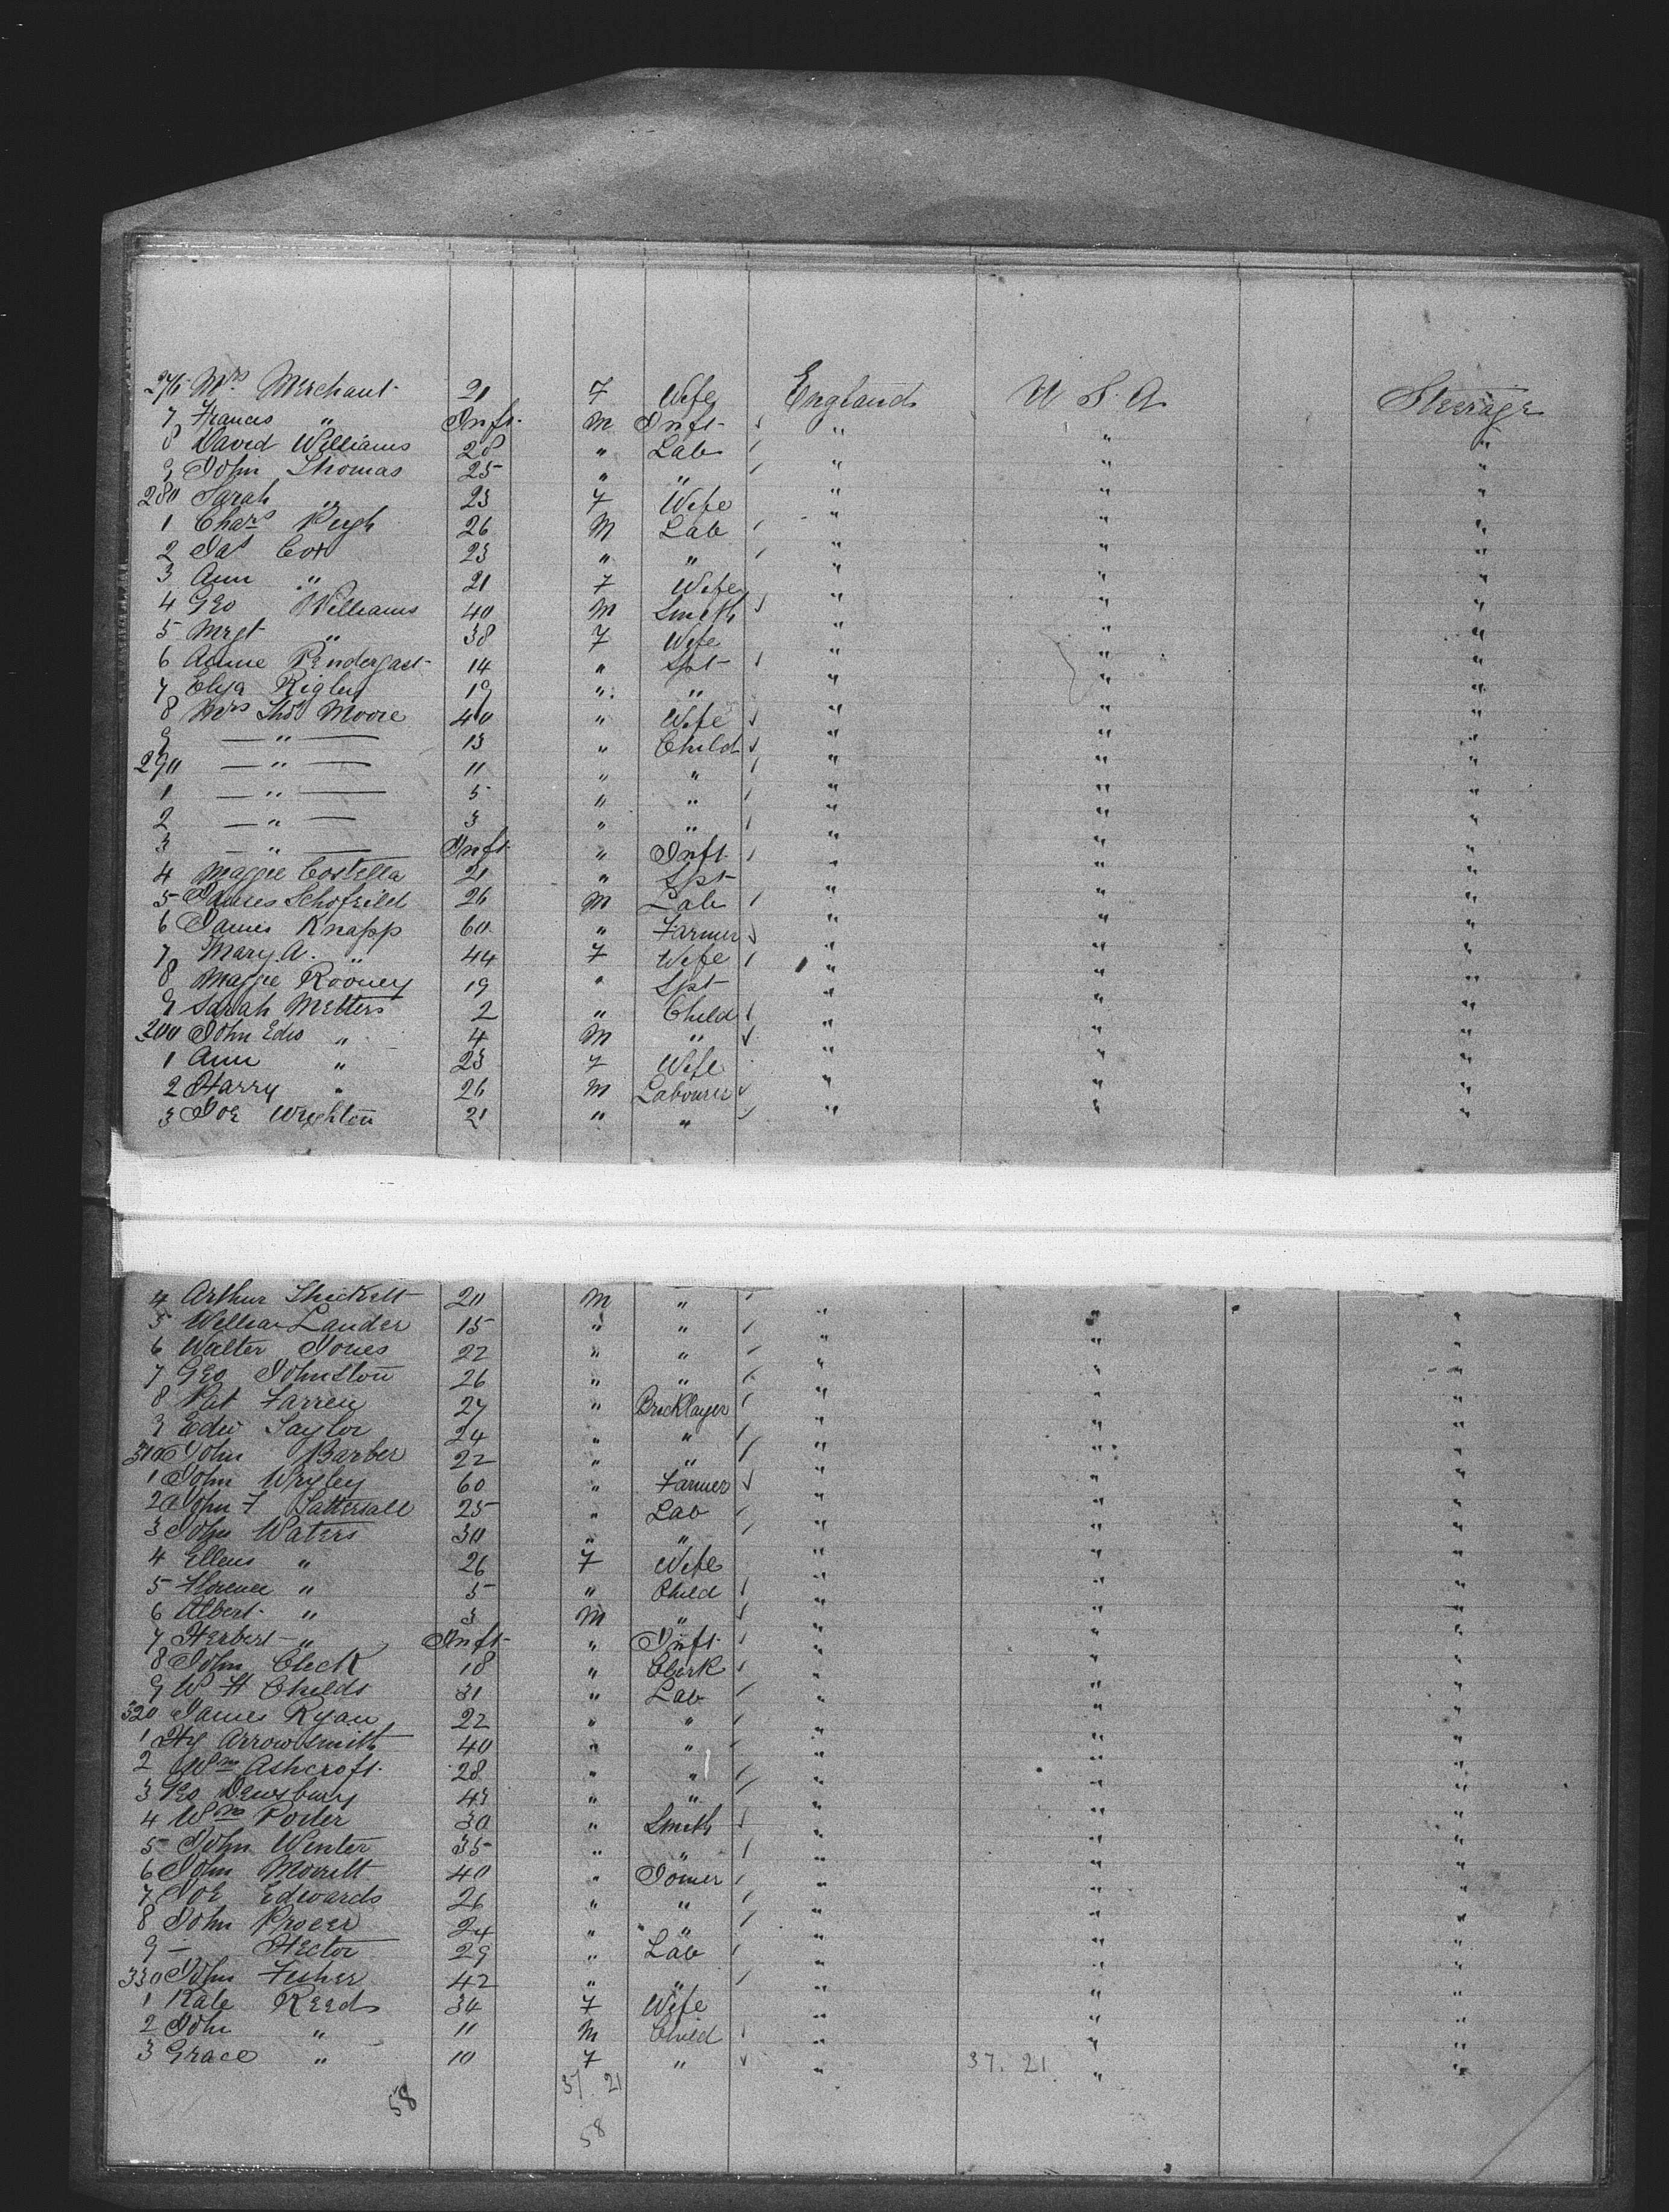 276 Mrs. Merchant 21 F Wife England U S A Steerage
7 Francis " Inft. M Inft " " "
8 David Williams 28 " Lab " " "
9 John Thomas 25 " " " " "
280 Sarah " 23 F Wife " " "
1 Chars Pugh 26 M Lab " " "
2 Jas Cox 23 " " " " "
3 Ann " 21 F Wife " " "
4 Geo Williams 40 M Smith " " "
5 Mrgt " 38 F Wife " " "
6 Annie Pendergast 14 " Spt " " "
7 Eliza Rigby 19 " " " " "
8 Mrs Thos Moore 40 " Wife " " "
9 — " — 13 " Child " " "
290 — " — 11 " " " " "
1 — " — 5 " " " " "
2 — " — 3 " " " " "
3 — " — Inft. " Inft. " " "
4 Maggie Costella 21 " Spt " " "
5 James Schofield 26 M Lab " " "
6 James Knapp 60 " Farmer " " "
7 Mary A. " 44 F Wife " " "
8 Maggie Rooney 19 " Spt " " "
9 Sarah Metters 2 " Child " " "
300 John Edw " 4 M " " " "
1 Ann " 23 F Wife " " "
2 Harry " 26 M Labourer " " "
3 Joe Wrighton 21 " " " " "
4 Arthur 20 M " " " "
5 William Lander 15 " " " " "
6 Walter Jones 22 " " " " "
7 Geo Johnston 26 " " " " "
8 Pat Farren 27 " Bricklayer " " "
9 Edw Taylor 24 " " " " "
310 John Barber 22 " " " " "
1 John Wryley 60 " Farmer " " "
2 John F Tattersall 25 " Lab " " "
3 John Waters 30 " " " " "
4 Ellen " 26 F Wife " " "
5 Florence " 5 " Child " " "
6 Albert " 3 M " " " "
7 Herbert " Inft " Inft. " " "
8 John Check 18 " Clerk " " "
9 W H Childs 31 " Lab " " "
320 James Ryan 22 " " " " "
1 Hy Arrowsmith 40 " " " " "
2 Wm Ashcroft 28 " " " " "
3 Geo Dewsbury 43 " " " " "
4 Wm Porter 30 " Smith " " "
5 John Winter 35 " " " " "
6 John Morrell 40 " Joiner " " "
7 Joe Edwards 26 " " " " "
8 John Procer 24 " " " " "
9 — Hector 29 " Lab " " "
330 John Fisher 42 " " " " "
1 Kate Reed 34 F Wife " " "
2 John " 11 M Child " " "
3 Grace " 10 F " " 37. 21 " "
58 37. 21
58